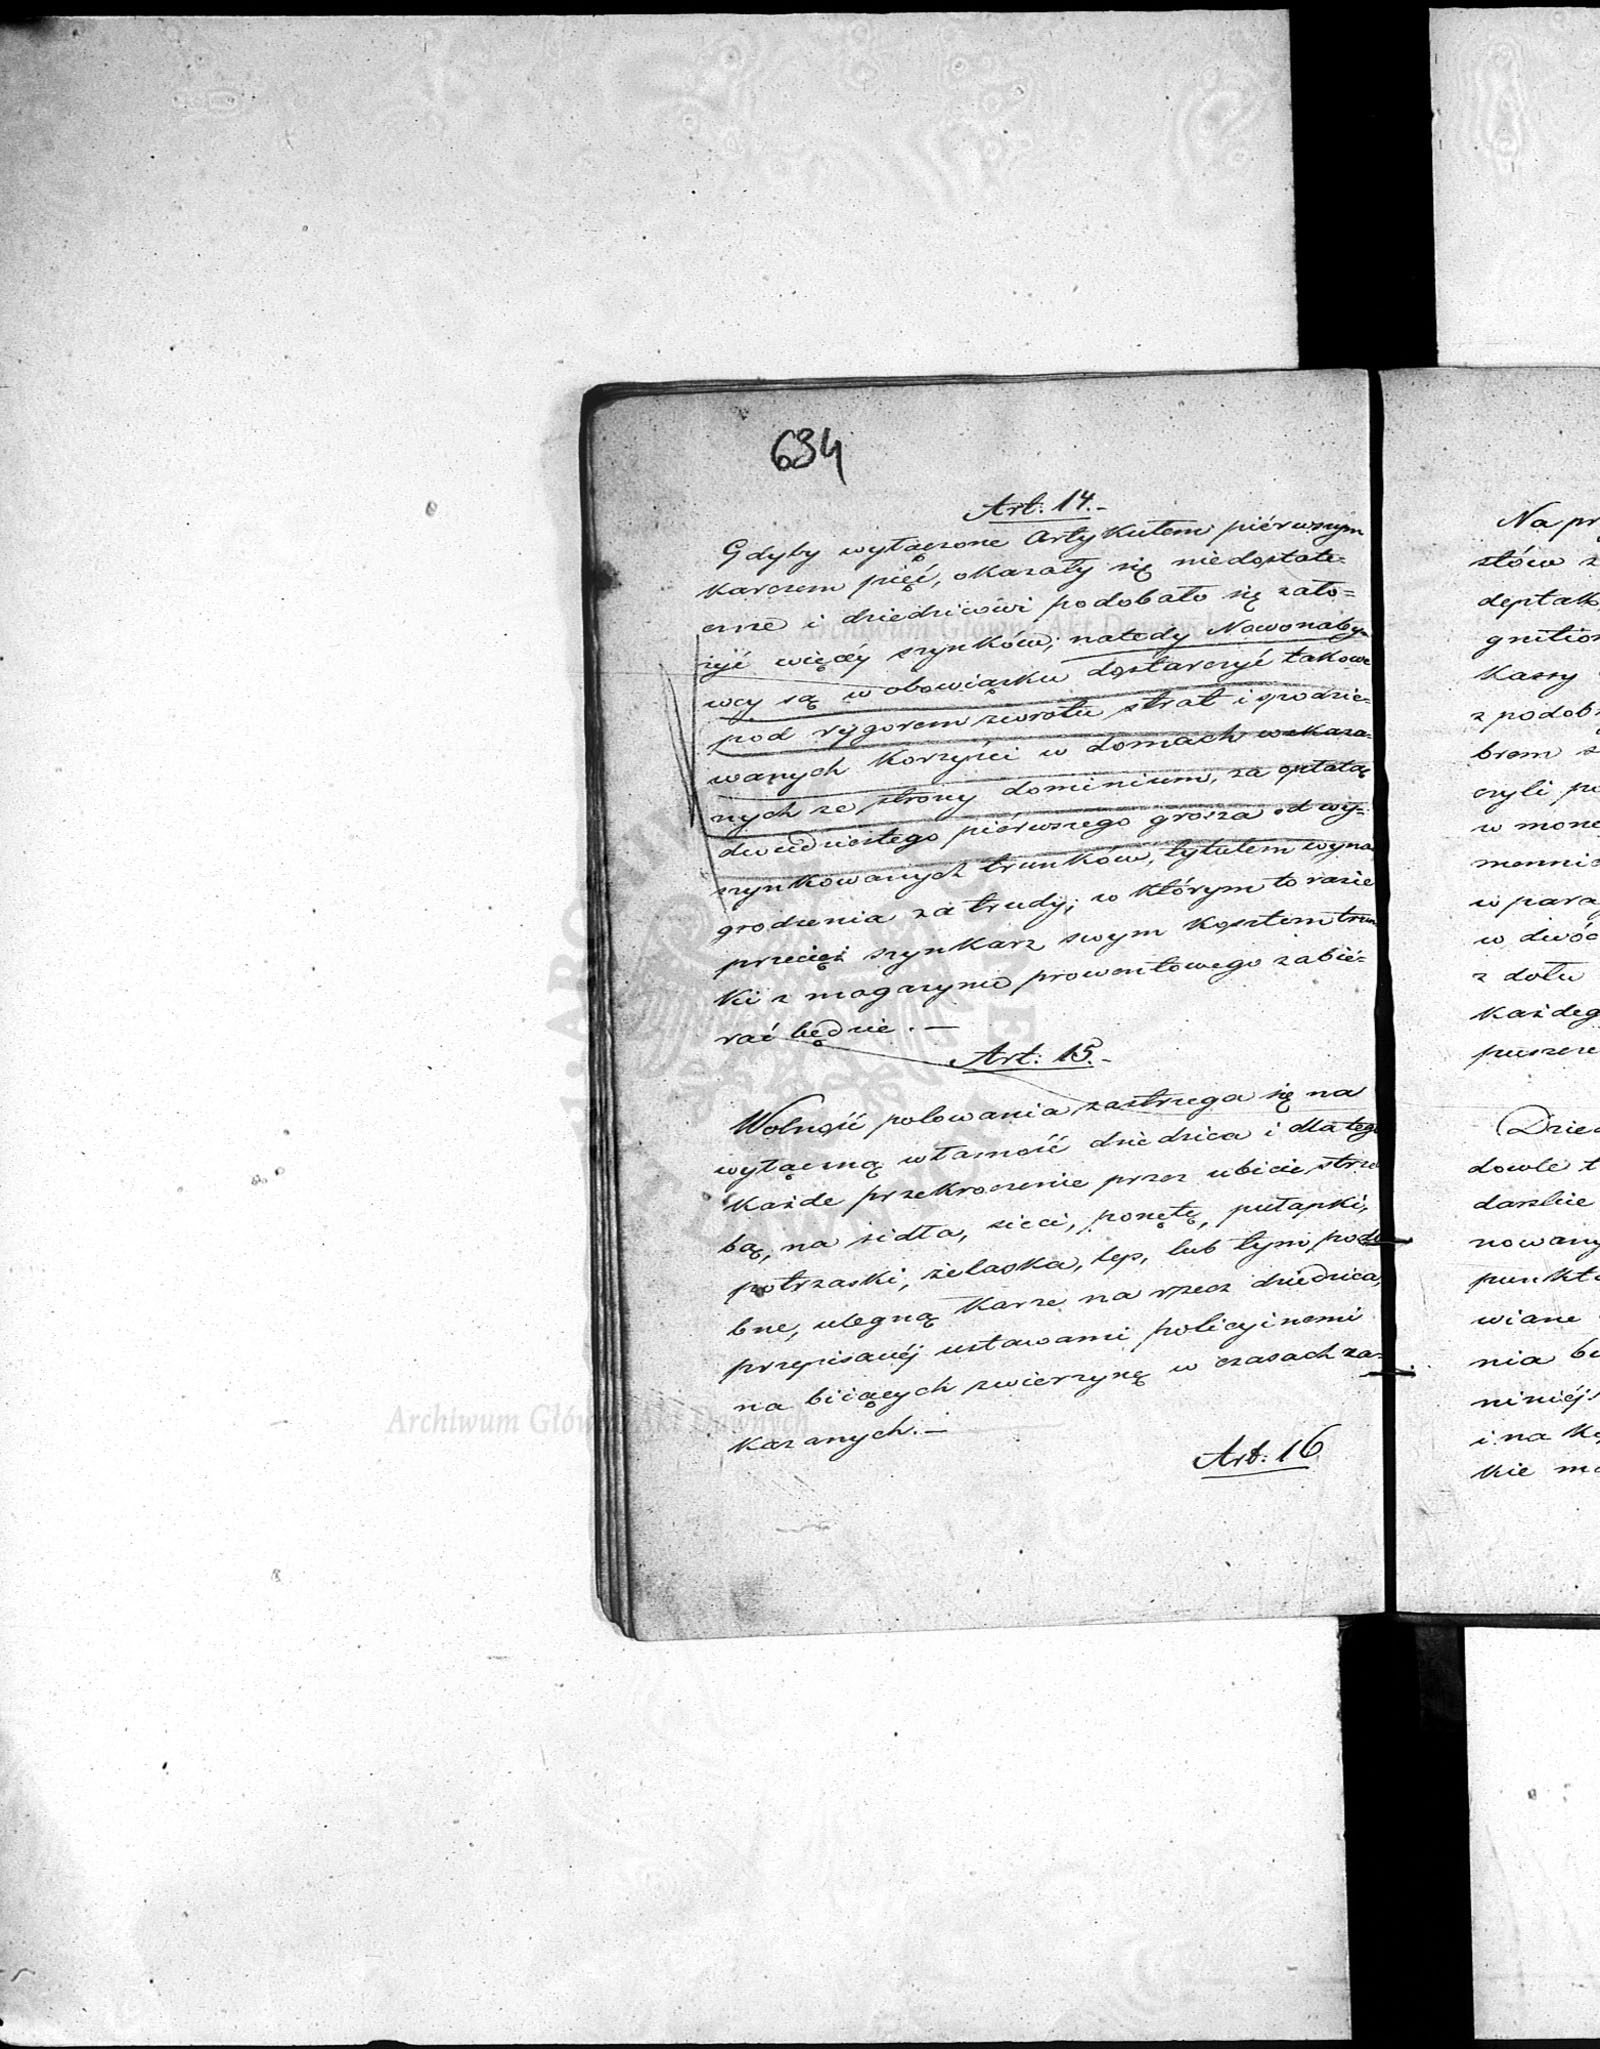 634
Art: 14.-
Gdyby wyłączone Artykułem piérwszym
karczem pięć, okazały się niedostate=
czne i dziedzicowi podobało się zało=
żyć więcéy szynków; natedy Nowonaby=
wcy są w obowiązku dostarczyć takowe
pod rygorem zwrotu strat i spodzie=
wanych korzyści w domach wskaza=
nych ze strony dominium, za opłatą
dwudziestego piérwszego grosza od wy=
szynkowanych trunków, tytułem wyna
grodzenia za trudy; w którym to razie
przecięż szynkarz swym kosztem trun
ki z magazynu prowentowego zabié=
rać będzie. —
Art: 15.-
Wolność polowania zastrzega się na
wyłączną własność dziedzica i dla tego
każde przekroczenie przez ubicie strze
bą, na sidła, sieci, ponętę, pułapki,
potrzaski, żelazka, lep, lub tym podo
bne, ulegną karze na rzecz dziedzica,
przepisanéj ustawami policyinemi
na biiących zwierzynę w czasach za=
kazanych. —
Art: 16
Na pr
słów z
deptak
gnition
Kassy
z podob
brem s
czyli po
w mone
mennic
w para
w dwóc
z dołu
każdeg
puszcze
Dzied
dowle t
darskie
nowany
punkt
wiane
nia be
niniéjs
i na
kie mo
Archiwum Główne Akt Dawnych
Archiwum Główne Akt Dawnych